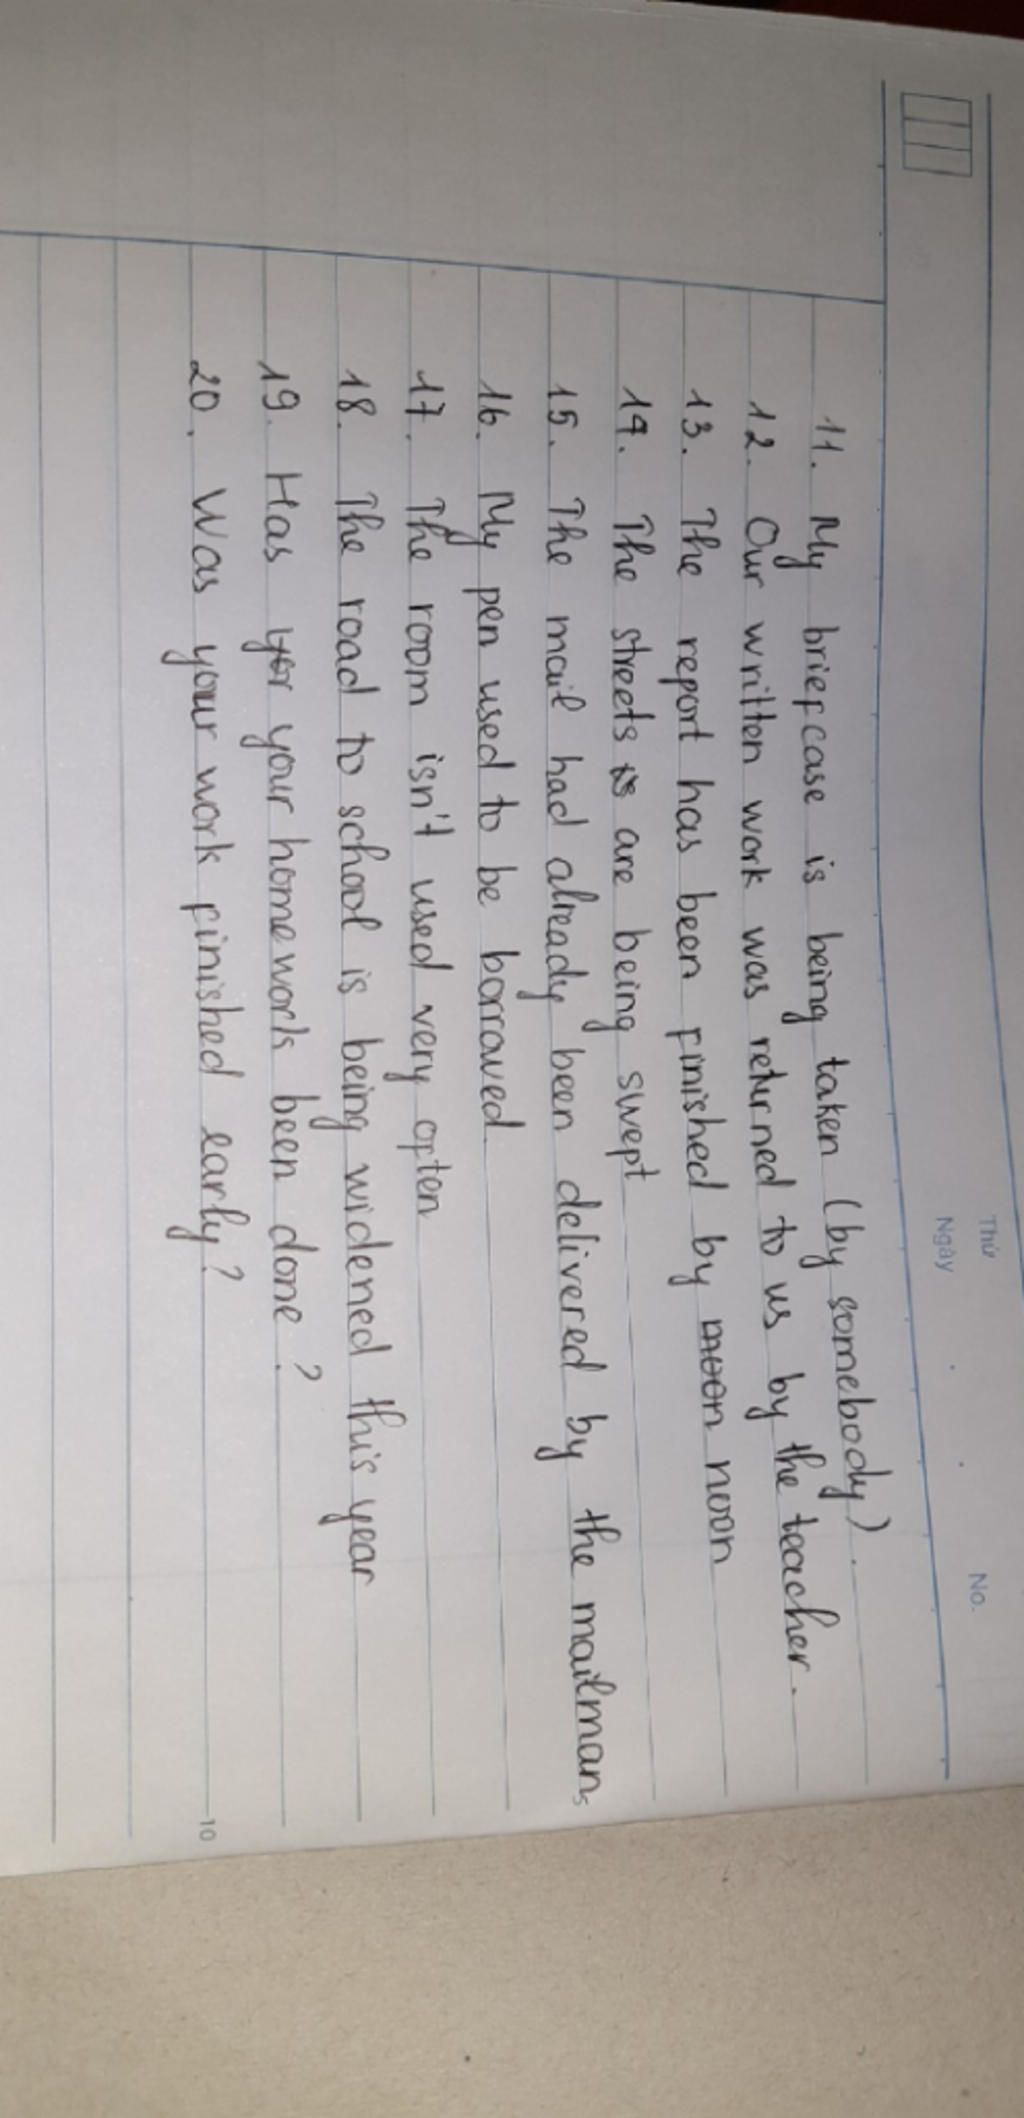 Thứ
Ngày No.
11. My briefcase is being taken (by somebody).
12. Our written work was returned to us by the teacher.
13. The report has been finished by moon noon
14. The streets is are being swept
15. The mail had already been delivered by the mailman
16. My pen used to be borrowed
17. The room isn't used very often
18. The road to school is being widened this year
19. Has your homework been done?
20. Was your work finished early?
10